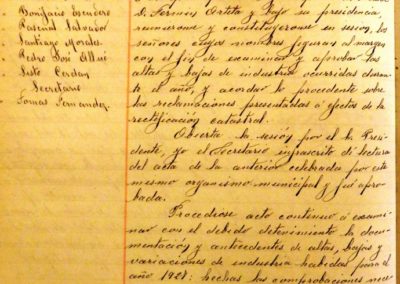 Bonifacio Escudero
Pascual Salvador
Santiago Morales
Pedro José Allué
Sisto Cerdan
Secretario
Tomas Fernandez
D. Fermin Artita y bajo su presidencia,
reunieronse y constituyeronse en sesion, los
señores cuyos nombres figuran al margen
con el fin de examinar y aprobar las
altas y bajas de industria ocurridas duran-
te el año, y acordar lo procedente sobre
las reclamaciones presentadas á efectos de la
rectificación catastral.
Abierta la sesión por el Sr. Presi-
dente, yo el Secretario infrascrito di lectura
del acta de la anterior celebrada por este
mismo organismo municipal y fué apro-
bada.
Procediose acto continuo á exami-
nar con el debido detenimiento la docu-
mentación y antecedentes de altas, bajas y
variaciones de industria habidas para el
año 1928: hechas las comprobaciones nece